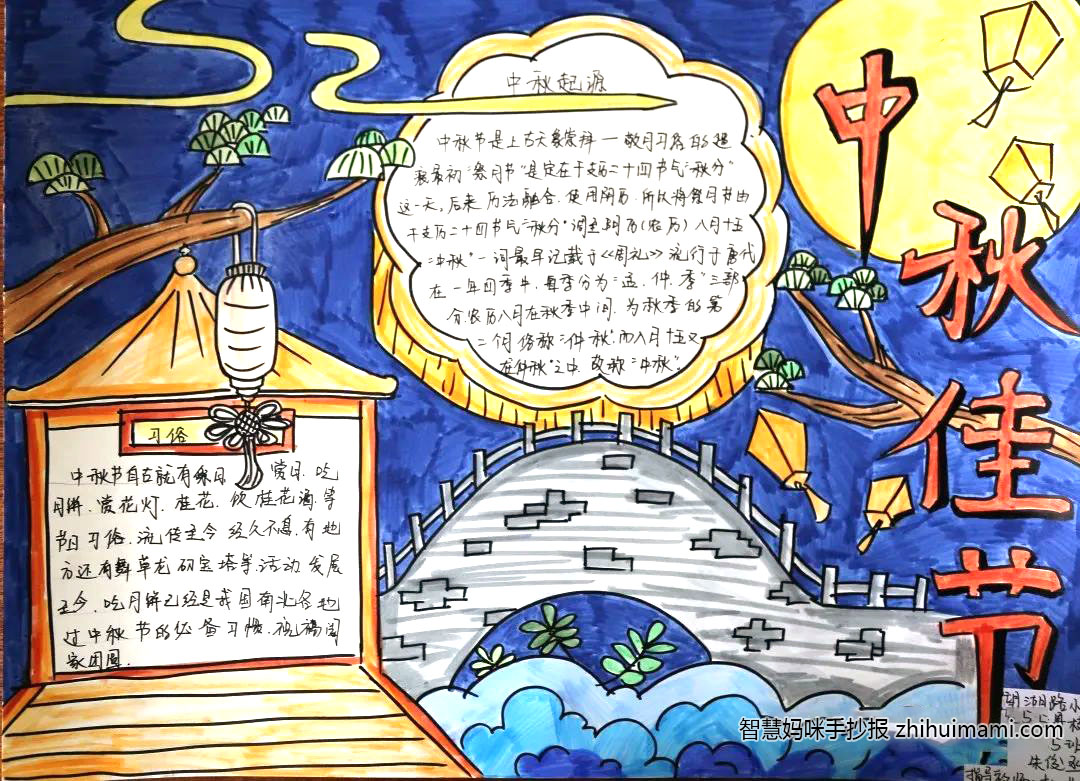 中秋佳节
中秋起源
中秋节是上古天象崇拜一敬月习俗的
最初"祭月节"是定在干支历二十四节气"秋分"
这一天,后来历法融合.使用阴历.所以将祭月节由
干支历二十四节气"秋分"调至阴历(农历)八月十五
"中秋"一词最早记载于《周礼》流行于唐代
在一年四季中,每季分为"孟.仲.季"三部
分.农历八月在秋季中间.为秋季的第
二个月俗称"仲秋".而八月十五又
在仲秋"之中.故称"中秋".
习俗
中秋节自古就有祭月 赏月.吃
月饼.赏花灯.桂花.饮桂花酒.等
节日习俗.流传至今经久不息.有地
方还有舞草龙砌宝塔等.活动发展
至今.吃月饼已经是我国南北各地
过中秋节的必备习惯.祝福阖
家团圆.
智慧妈咪手抄报 zhihuimami.com